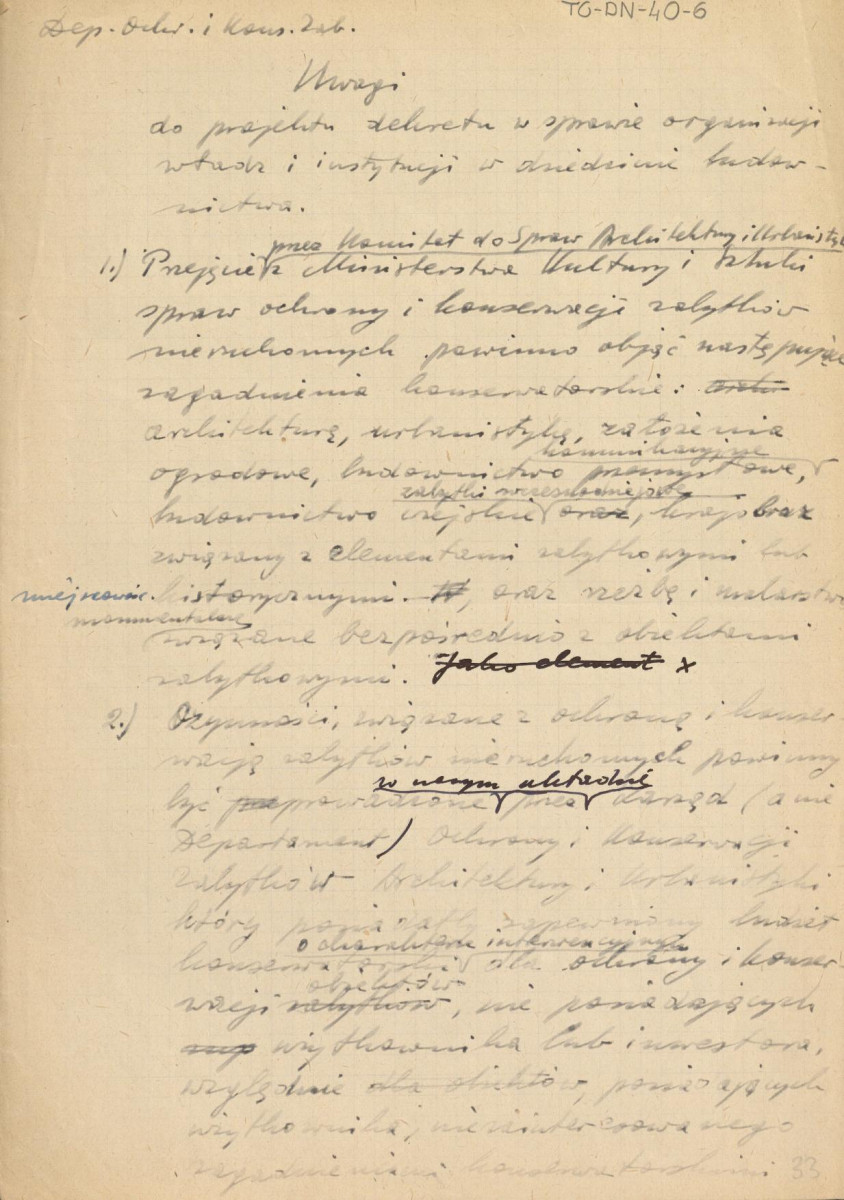 TG-DN-40-6
Dep. Ochr. i Kons. Zab.
Uwagi
do projektu dekretu w sprawie organizacji
władz i instytucji w dziedzinie budow-
nictwa.
przez Komitet do Spraw Architektury i Urbanistyki
1.) Przejęcie z Ministerstwa Kultury i Sztuki
spraw ochrony i konserwacji zabytków
nieruchomych powinno objąć następujące
zagadnienia konserwatorskie:
architekturę, urbanistykę, założenia
komunikacyjne
ogrodowe, budownictwo przemysłowe,
zabytki
budownictwo wiejskie oraz, krajobraz
związany z elementami zabytkowymi lub
miejscowość. historycznymi. W, oraz rzeźbę i malarstwo
monumentalne
związane bezpośrednio z obiektami
zabytkowymi. Jako element x
2.) Czynności, związane z ochroną i konser-
wacją zabytków nieruchomych powinny
w naszym układzie
być prowadzone przez Zarząd (a nie
Departament) Ochrony i Konserwacji
Zabytków Architektury i Urbanistyki
który posiadałby zapewniony budżet
o charakterze interwencyjnym
konserwatorski dla ochrony i konser-
obiektów
wacji zabytków, nie posiadających
użytkownika lub inwestora,
względnie dla obiektów, posiadających
użytkownika, niezainteresowanego
zagadnieniami konserwatorskimi 33